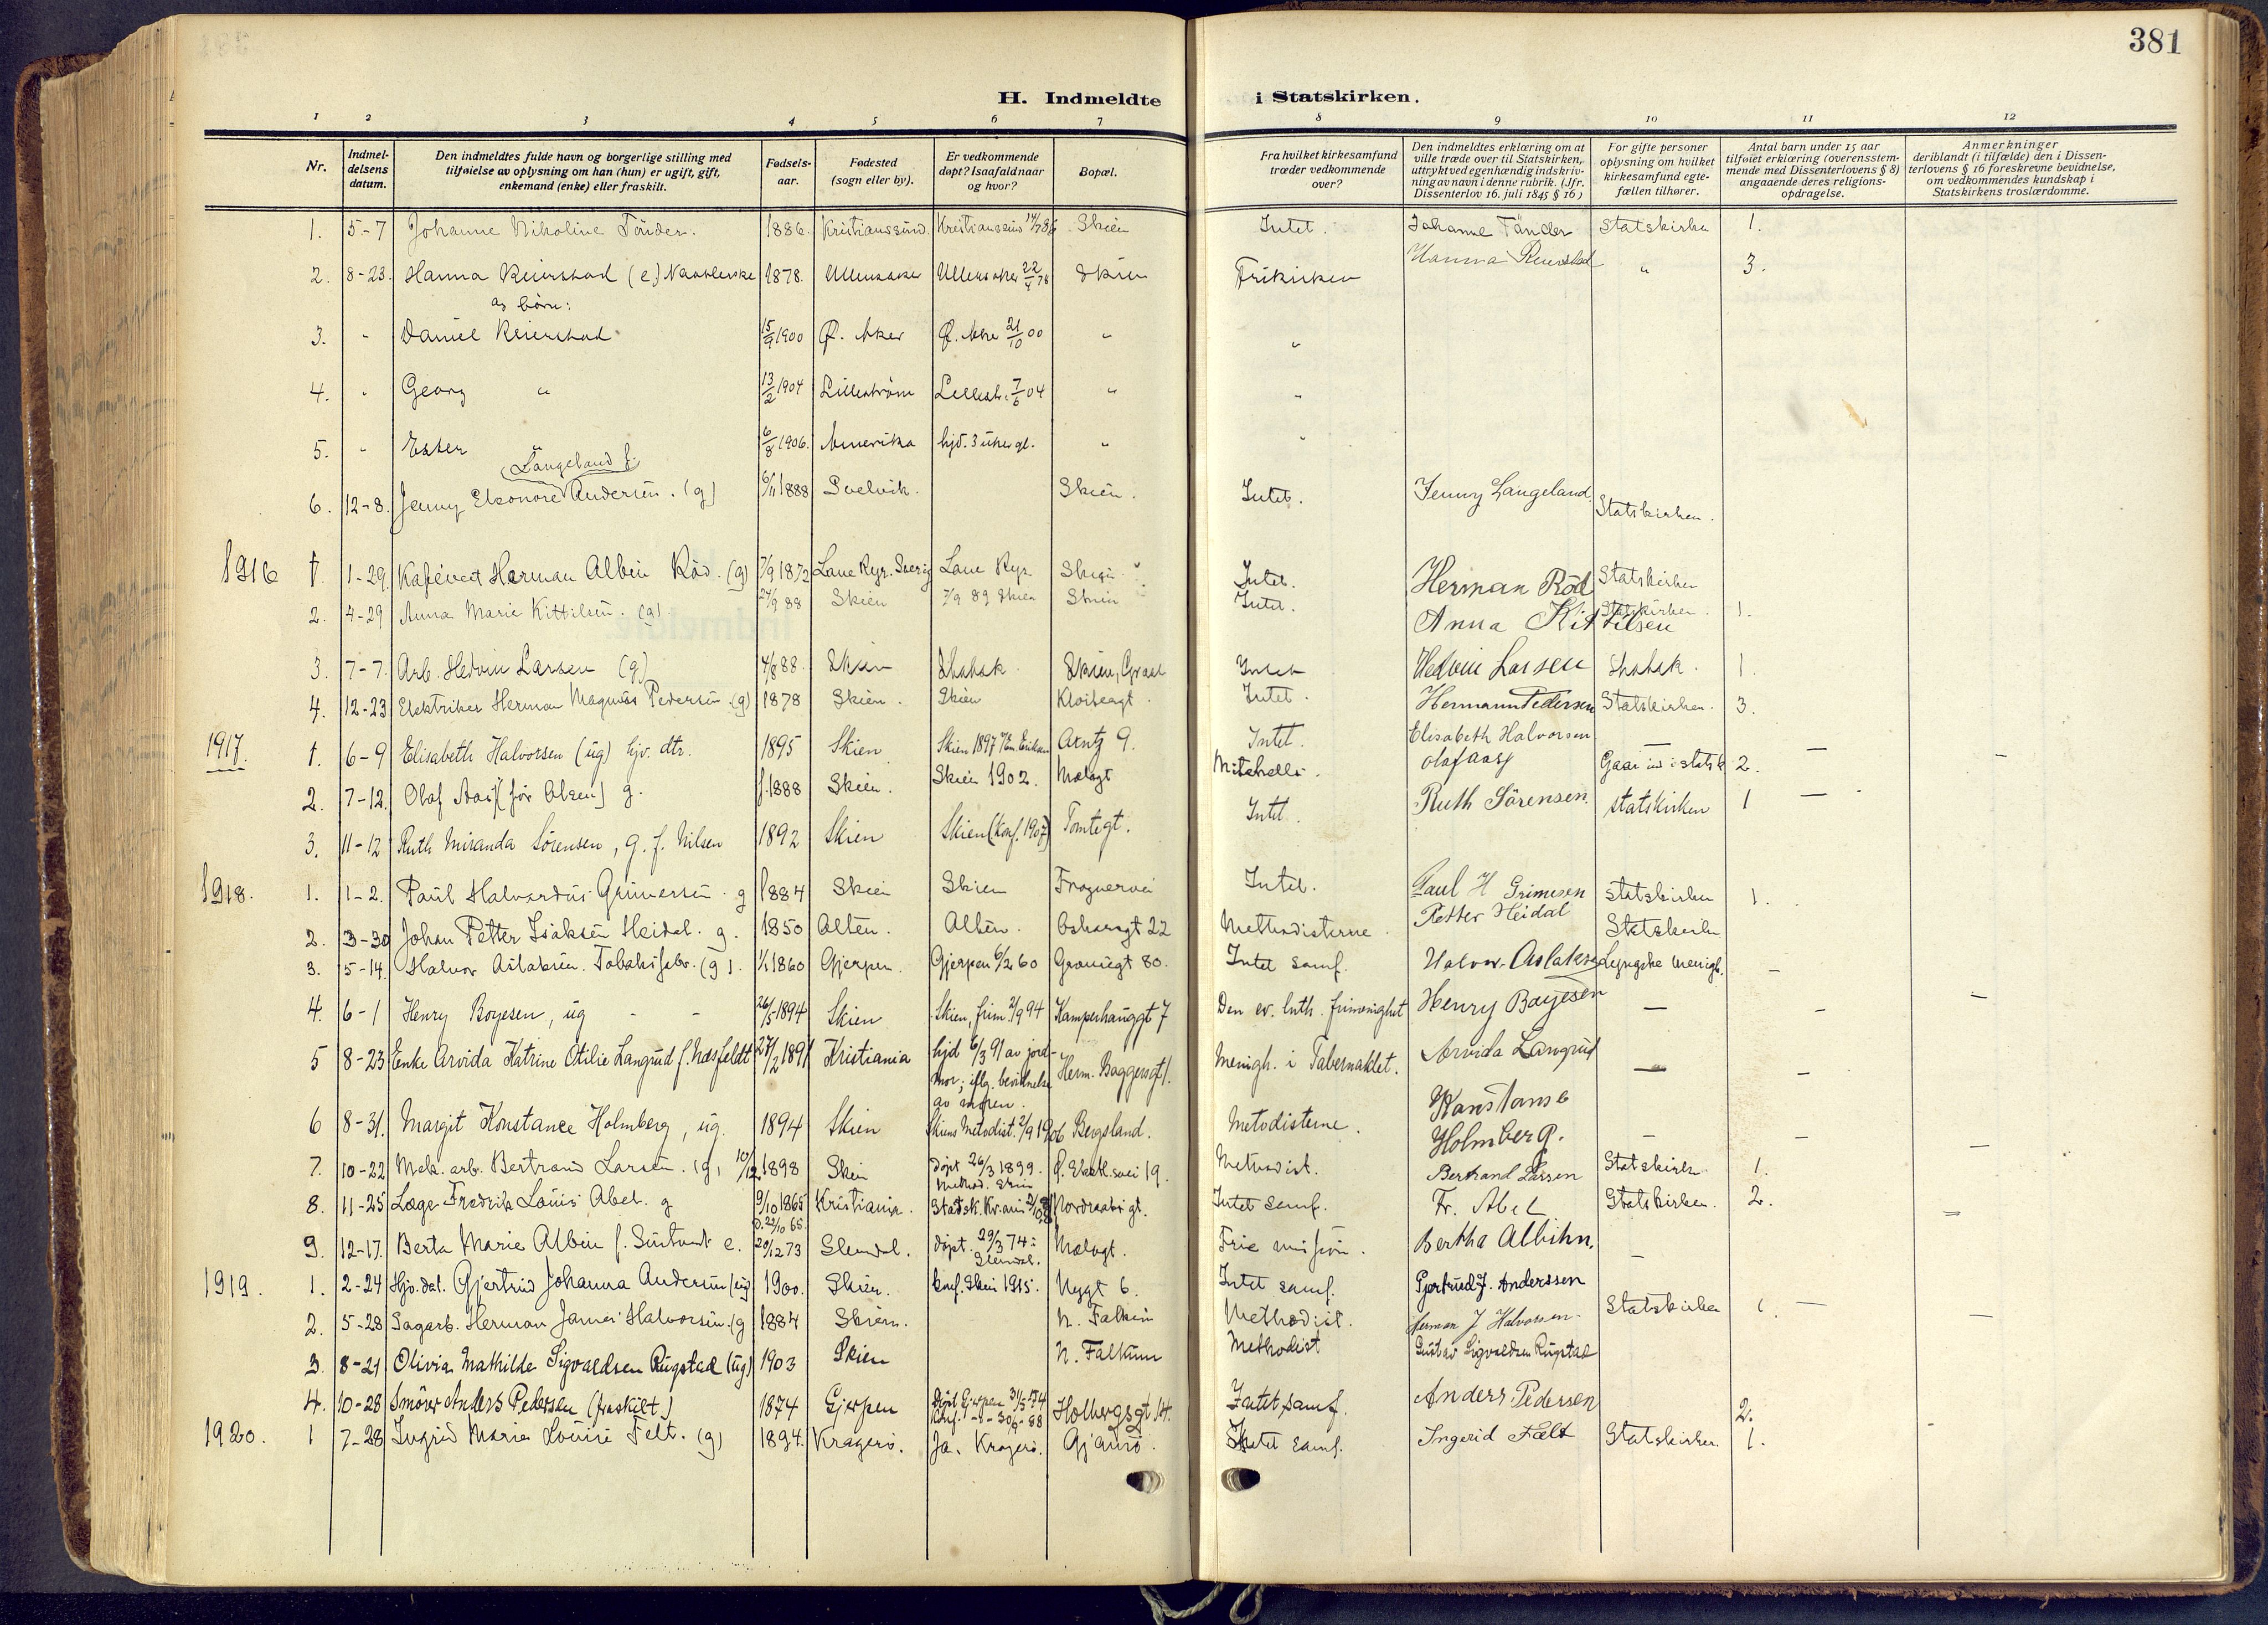 381
H. Indmeldte i Statskirken.
1 2 3 4 5 6 7 8 9 10 11 12
Nr.
Indmeldelsens datum.
Den indmeldtes fulde navn og borgerlige stilling med tilføielse av oplysning om han (hun) er ugift, gift, enkemand (enke) eller fraskilt.
Fødselsaar.
Fødested (sogn eller by).
Er vedkommende døpt? Isaafald naar og hvor?
Bopæl.
Fra hvilket kirkesamfund træder vedkommende over?
Den indmeldtes erklæring om at ville træde over til Statskirken, uttrykt ved egenhændig indskrivning av navn i denne rubrik. (Jfr. Dissenterlov 16. juli 1845 § 16)
For gifte personer oplysning om hvilket kirkesamfund egtefællen tilhører.
Antal barn under 15 aar tilføiet erklæring (overensstemmende med Dissenterlovens § 8) angaaende deres religionsopdragelse.
Anmerkninger deriblandt (i tilfælde) den i Dissenterlovens § 16 foreskrevne bevidnelse, om vedkommendes kundskap i Statskirkens troslærdomme.
1. 5-7 Johanne Nikoline Tønder. 1886. Kristianssund. Kristianssund 14/7 86 Skien Intet. Johanne Tønder Statskirken 1.
2. 8-23. Hanna Reierstad (e) 1878. Ullensaker Ullensaker 22/4 78 Skien Frikirken Hanna Reierstad " 3.
og børn:
3. " Daniel Reierstad 15/9 1900 Ø. Aker Ø. Aker 21/10 00 " "
4. " Georg " 13/2 1904 Lillestrøm Lillestr. 7/6 04 " "
5. " Ester " 6/8 1906. Amerika hjd. 3 uker gl. " "
6. 12-8. Jenny Eleonore Langeland f. Andersen. (g) 6/11 1888 Svelvik. Skien. Intet. Jenny Langeland Statskirken.
1916 1. 1-29. Kafévert Herman Albin Röd. (g) 7/9 1872 Lane Ryr. Sverig Lane Ryr Skien Intet. Herman Röd Statskirken
2. 4-29 Anna Marie Kittilsen. (g) 24/9 88 Skien 7/9 89 Skien Skien Intet. Anna Kittilsen Statskirken. 1.
3. 7-7. Arb. Hedvin Larsen (g) 4/8 88. Skien Statsk. Skien, Intet Hedvin Larsen Statsk. 1.
4. 12-23 Elektriker Herman Magnus Pedersen. (g) 1878 Skien. Skien Intet Hermann Pedersen Statskirken. 3.
1917. 1. 6-9 Elisabeth Halvorsen (ug) hjv. dtr. 1895 Skien Skien 1897 Arntz 9. Intet. Elisabeth Halvorsen — — —
2. 7-12. Olof Aas (før Olsen) g. f. 1888 Skien. Skien 1902. Mælagt Mitchells. Olaf Aas Gaar ind i statsk 2.
3. 11-12 Ruth Miranda Sørensen, g. f. Nilsen 1892 Skien Skien (Konf. 1907) Tomtegt. Intet. Ruth Sörensen. statskirken 1 —
1918. 1. 1-2. Paul Halvardus Grimesen. g 1884 Skien Skien Frognervei Intet. Paul H Grimesen Statskirken 1.
2. 3-30 Johan Petter Isaksen Heidal. g. 1850 Alten. Alten. Oskarsgt 22 Methodisterne. Petter Heidal Statskirken
3. 5-14. Halvor Aslaksen. Tobaksfabr. (g). 1/1 1860 Gjerpen. Gjerpen 6/2 60 80. Intet samf. Halvor Aslaksen Menigh. —
4. 6-1 Henry Boyesen, ug - - 26/5 1894 Skien Skien, frim. 2/9 94 Kamperhauggt 7 Den ev. luth. frimenighet Henry Boyesen — — —
5 8-23 Enke Arvida Katrine Otilie Langrud f. Næsfeldt 27/2 1891 Kristiania hjd 6/3 91 av jordmor; iflg. bevidnelse av moren. Herm. Baggersgt 1. Menigh. i Tabernaklet. Arvida Langrud — —
6 8-31. Margit Konstance Holmberg, ug. 1894 Skien Skiens Metodist. 2/9 1906 Bergsland. Metodisterne. Konstanse Holmberg. — — —
7. 10-22 Mek. arb. Bertrand Larsen. (g) 10/12 1898 Skien Døpt 26/3 1899. Method. Skien Methodist. Bertrand Larsen Statskirk. 1.
8. 11-25 Læge Fredrik Louis Abel. g 9/10 1865 Kristiania. Statsk. Kr.ania Nordraaks gt. Intet samf. Fr. Abel Statskirken. 2. —
9. 12-17. Berta Marie Albin f. e. 29/12 73 Slemdal. Døpt. 29/3 74: Slemdal. Mælagt. Frie misjon. Bertha Albihn. —
1919. 1. 2-24 Hjv. dat. Gjertrud Johanna Andersen (ug) 1900. Skien. konf. Skien 1915. Nygt 6. Intet samf. Gjertrud J. Anderssen
2. 5-28 Sagarb. Herman James Halvorsen. (g 1884 Skien. N. Falkum Methodist. Herman J Halvorsen. Statskirken 1. — —
3. 8-21 Olivia Mathilde Sigvaldsen Rugstad (ug) 1903 Skien N. Falkum Methodist Gustav Sigvaldsen Rugstad
4. 10-28 Smører Anders Pedersen (fraskilt) 1874 Gjerpen Døpt Gjerpen 31/5 74 Konf. -"- 30/9-88 Holbergsgt 14. Intet samf. Anders Pedersen 2.
1920. 1 7-28 Ingrid Marie Louise Felt. (g) 1894. Kragerø. Ja. Kragerø. Intet samf. Ingerid Felt Statskirken. 1.